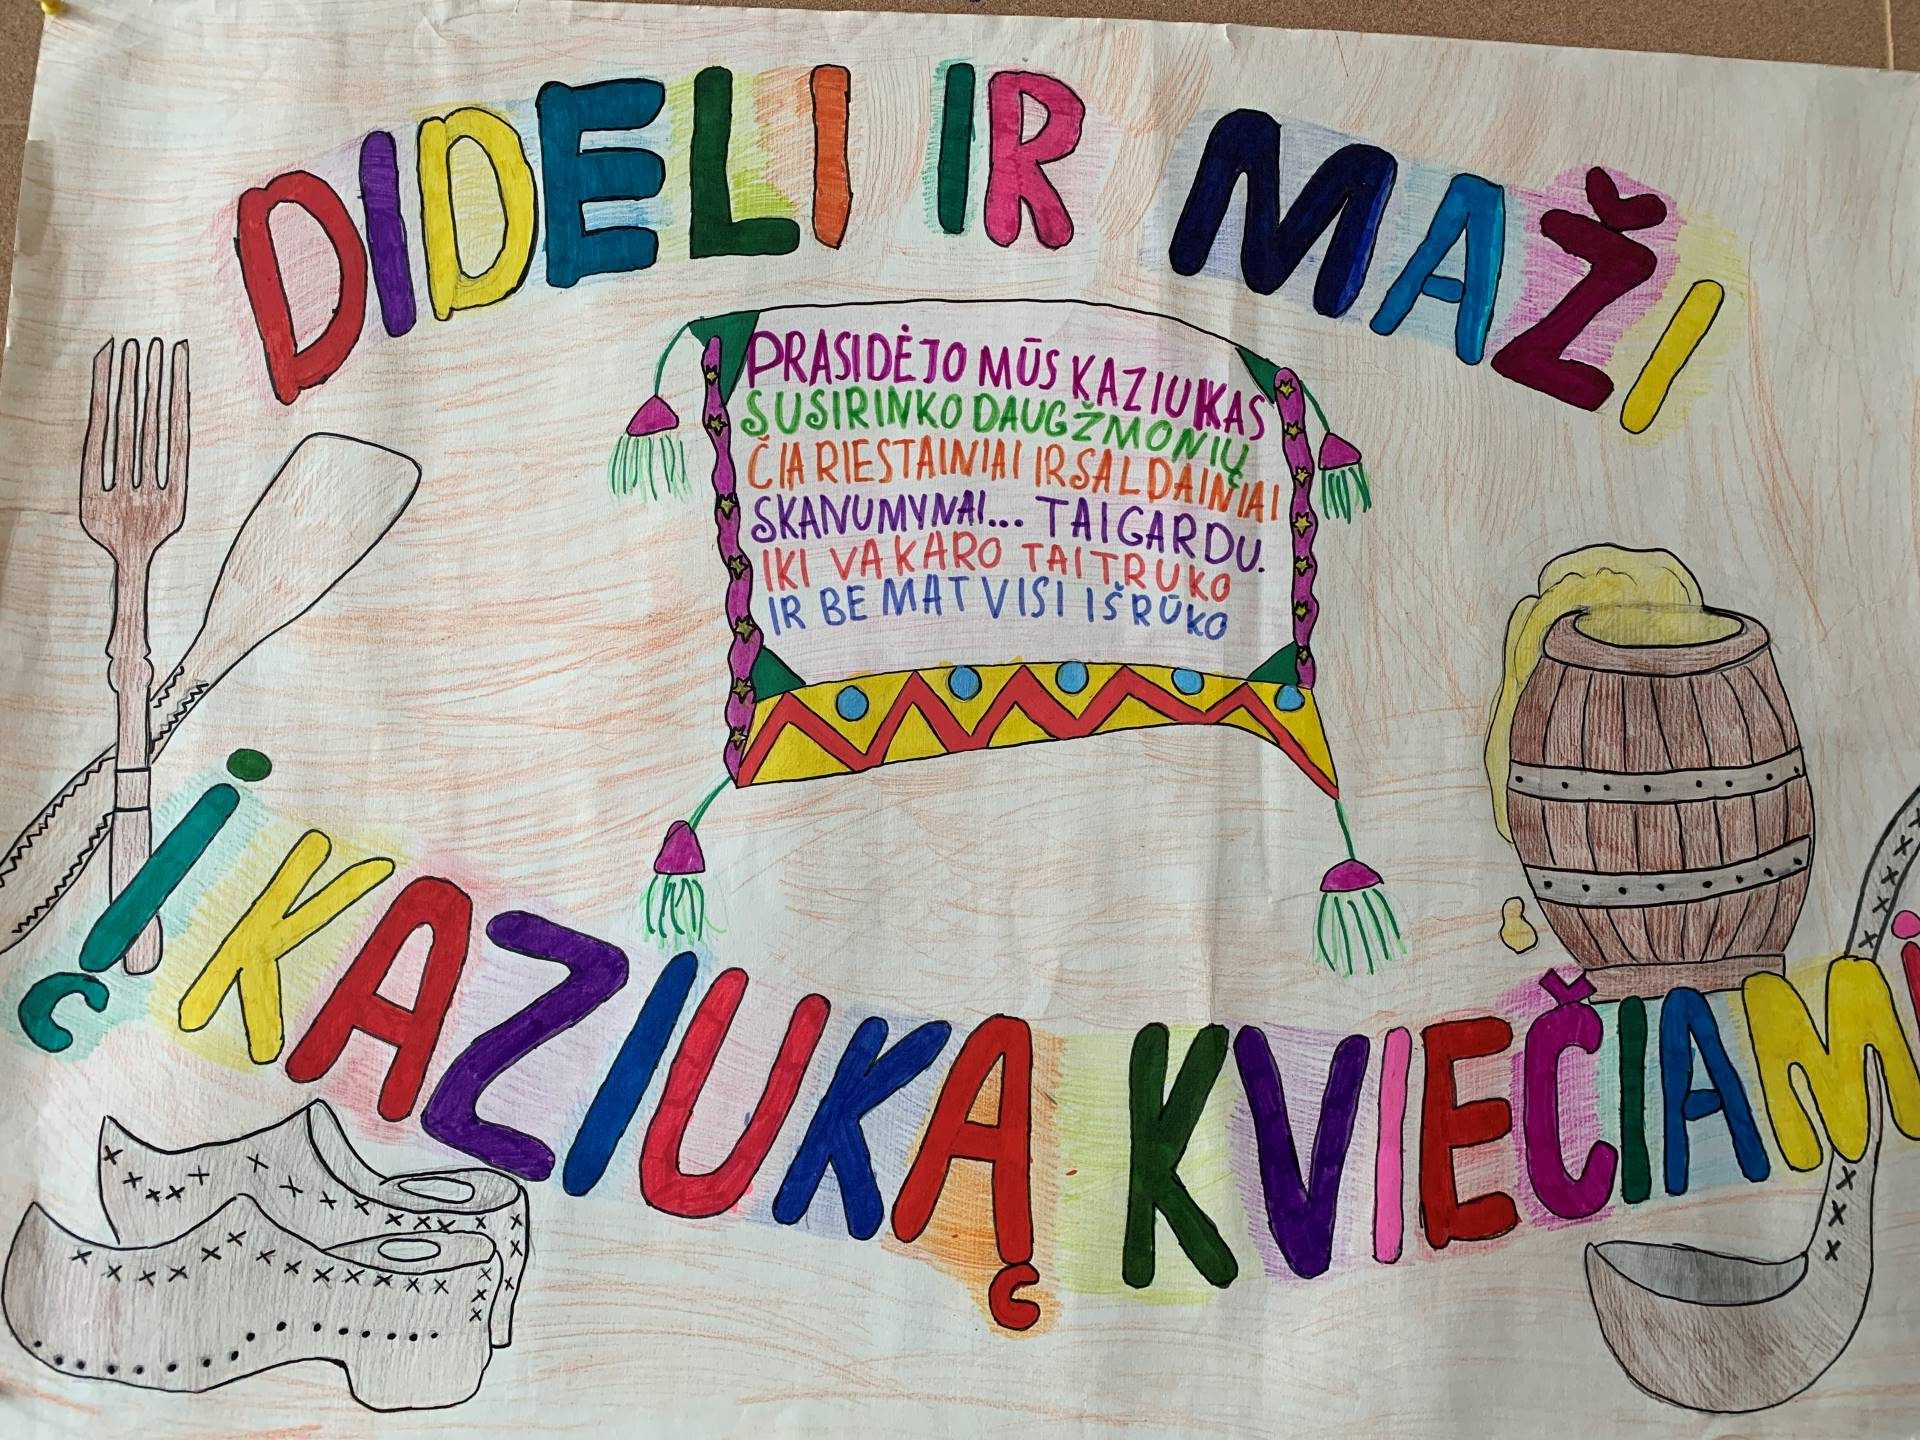 DIDELI IR MAŽI
PRASIDĖJO MŪS KAZIUKAS
SUSIRINKO DAUG ŽMONIŲ
ČIA RIESTAINIAI IR SALDAINIAI
SKANUMYNAI... TAI GARDU.
IKI VAKARO TAI TRUKO
IR BE MAT VISI IŠRŪKO
Į KAZIUKĄ KVIEČIAMI